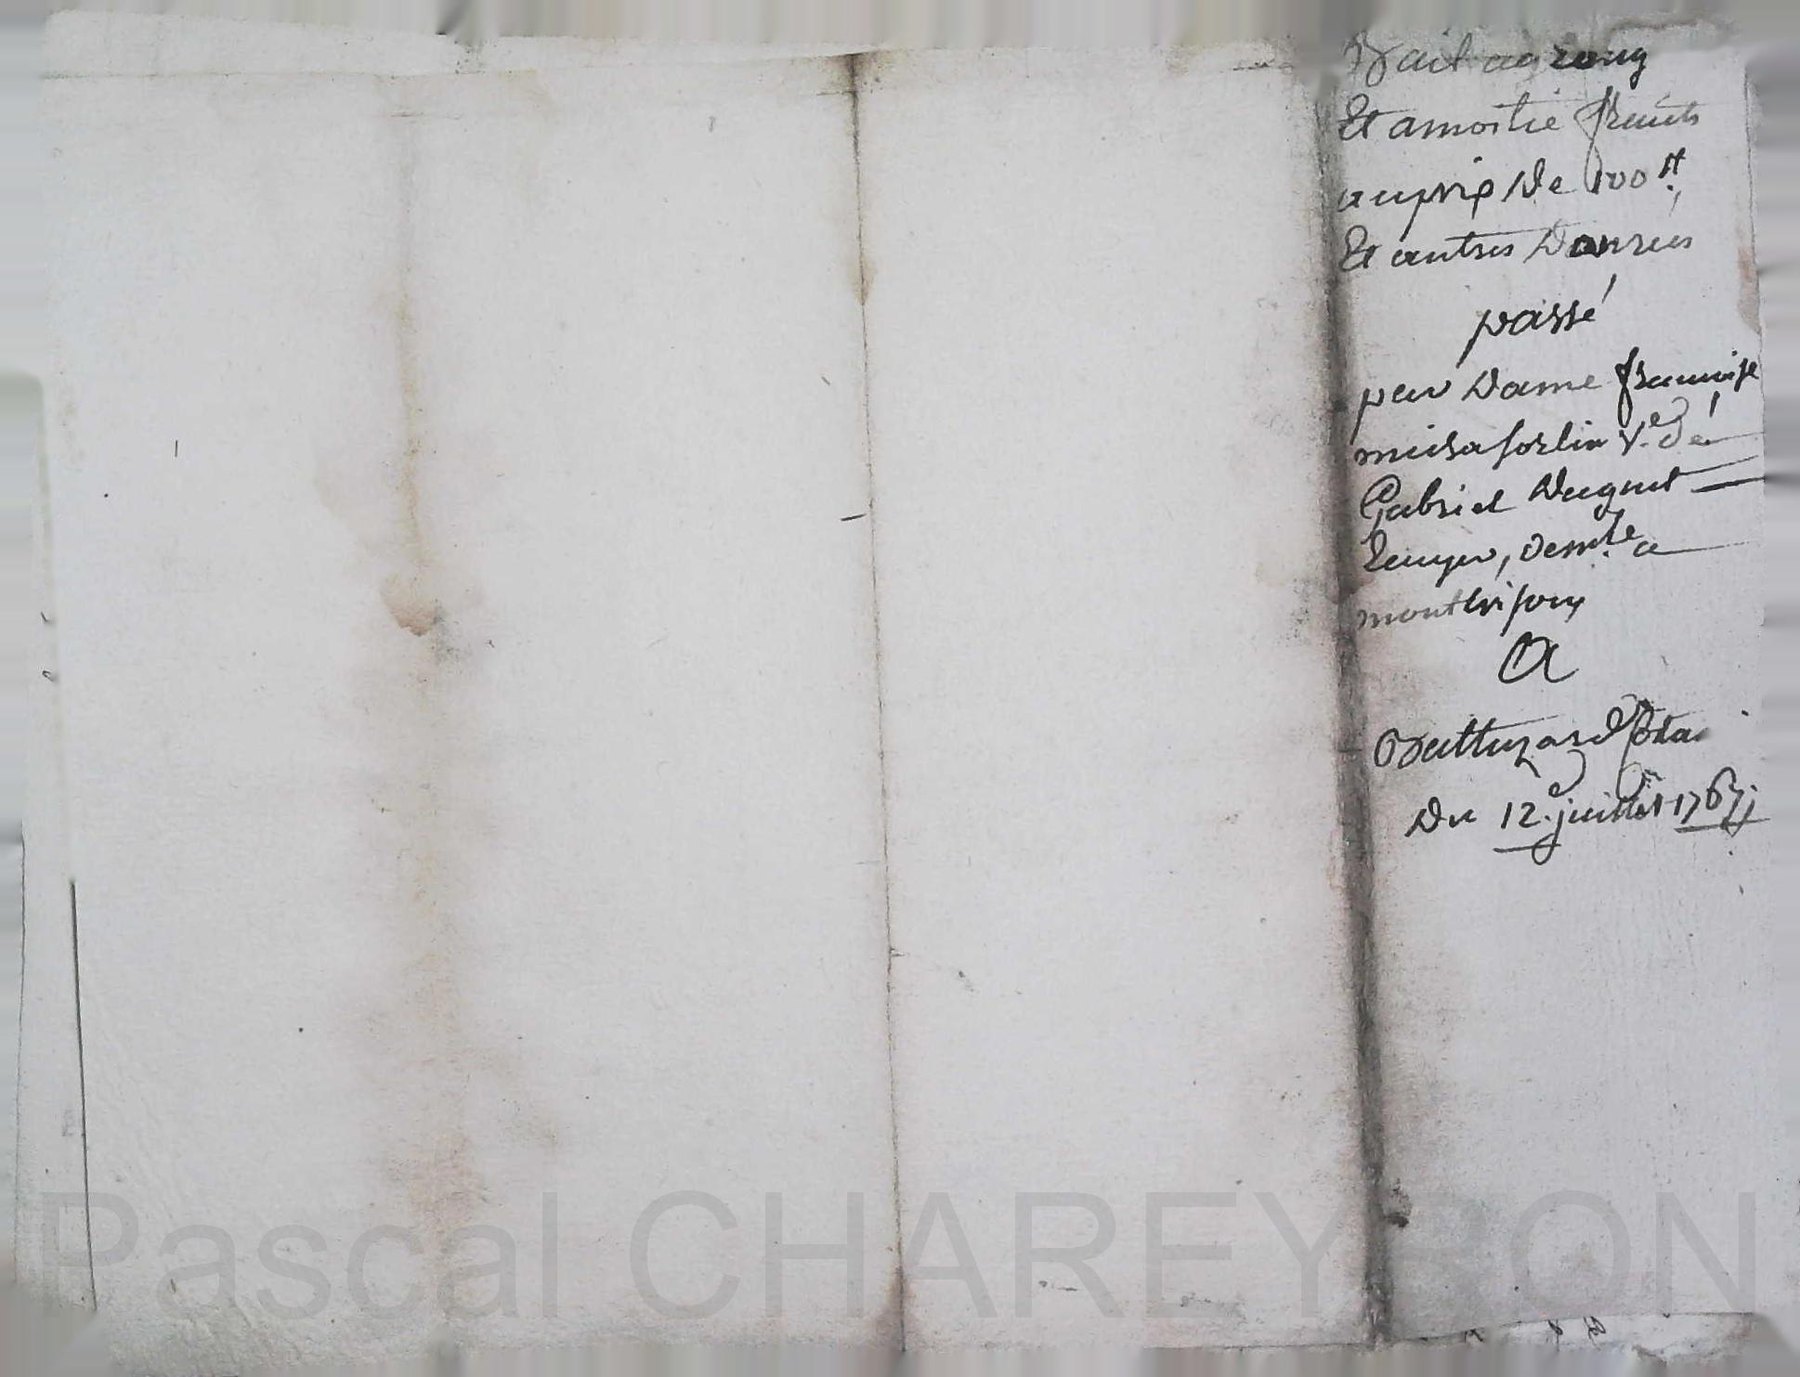 Bail a grang
Et a moitié fruits
au prix de 100 ₶
Et autres Danrées
passé
par Dame françoise
V.e de
Gabriel Duguet
Ecuyer, dem.te a
montbrison
A
Baltazard
Du 12.e juillet 1767;
Pascal CHAREYRON